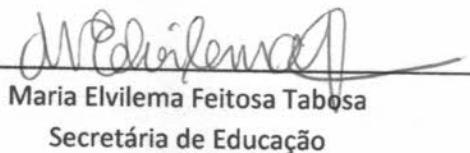 Maria Elvilema Feitosa Tabosa
Secretária de Educação